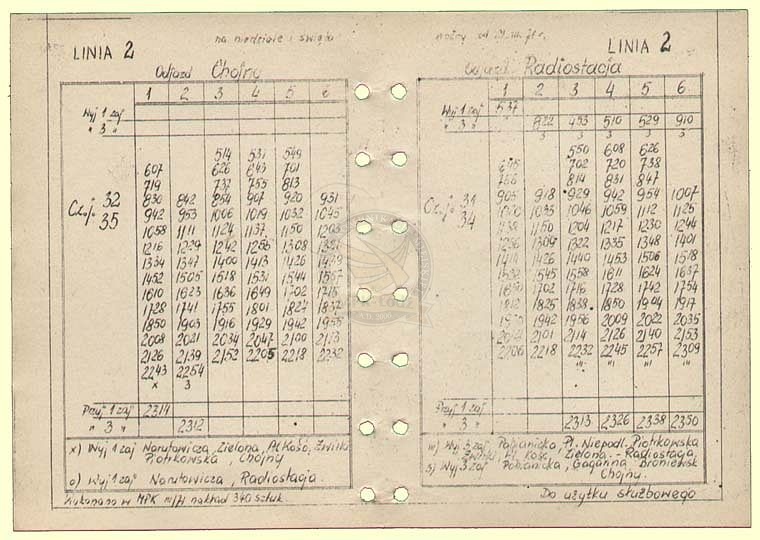 LINIA 2
na niedziele i święta
Odjazd Chojny
1 2 3 4 5 6
Wyj 1 zaj
" 3 "
514 531 549
607 626 643 701
719 737 755 813
Cz. j. 32 830 842 854 907 920 931
35 942 953 1006 1019 1032 1045
1058 1111 1124 1137 1150 1203
1216 1229 1242 1256 1308 1321
1334 1347 1400 1413 1426 1439
1452 1505 1518 1531 1544 1557
1610 1623 1636 1649 1702 1715
1728 1741 1755 1801 1827 1832
1850 1903 1916 1929 1942 1955
2008 2021 2034 2047 2100 2113
2126 2139 2152 2205 2218 2232
2243 2254
x 3
Przyj 1 zaj 2314
" 3 " 2312
x) Wyj 1 zaj Narutowicza, Zielona, Al Kość, Żwirki
Piotrkowska, Chojny
o) Wyj 1 zaj Narutowicza, Radiostacja
Wykonano w MPK nakład 340 sztuk
ważny od
LINIA 2
Odjazd Radiostacja
1 2 3 4 5 6
Wyj 1 zaj 537
" 3 " 822 453 510 529 910
3 3 3 3 3
550 608 626
645 702 720 738
756 814 831 847
Cz. j. 31 905 918 929 942 954 1007
34 1033 1046 1059 1112 1125
1138 1150 1204 1217 1230 1244
1256 1309 1322 1335 1348 1401
1414 1426 1440 1453 1506 1518
1532 1545 1558 1611 1624 1637
1650 1702 1716 1728 1742 1754
1812 1825 1838 1850 1904 1917
1942 1956 2009 2022 2035
2101 2114 2126 2140 2153
2206 2218 2232 2245 2257 2309
Przyj 1 zaj
" 3 " 2313 2326 2338 2350
Wyj 3 zaj Pabianicka, Pl. Niepodl. Piotrkowska
Żwirki, Al. Kość, Zielona - Radiostacja,
3) Wyj 3 zaj Pabianicka, Gagarina, Broniewsk
Chojny.
Do użytku służbowego